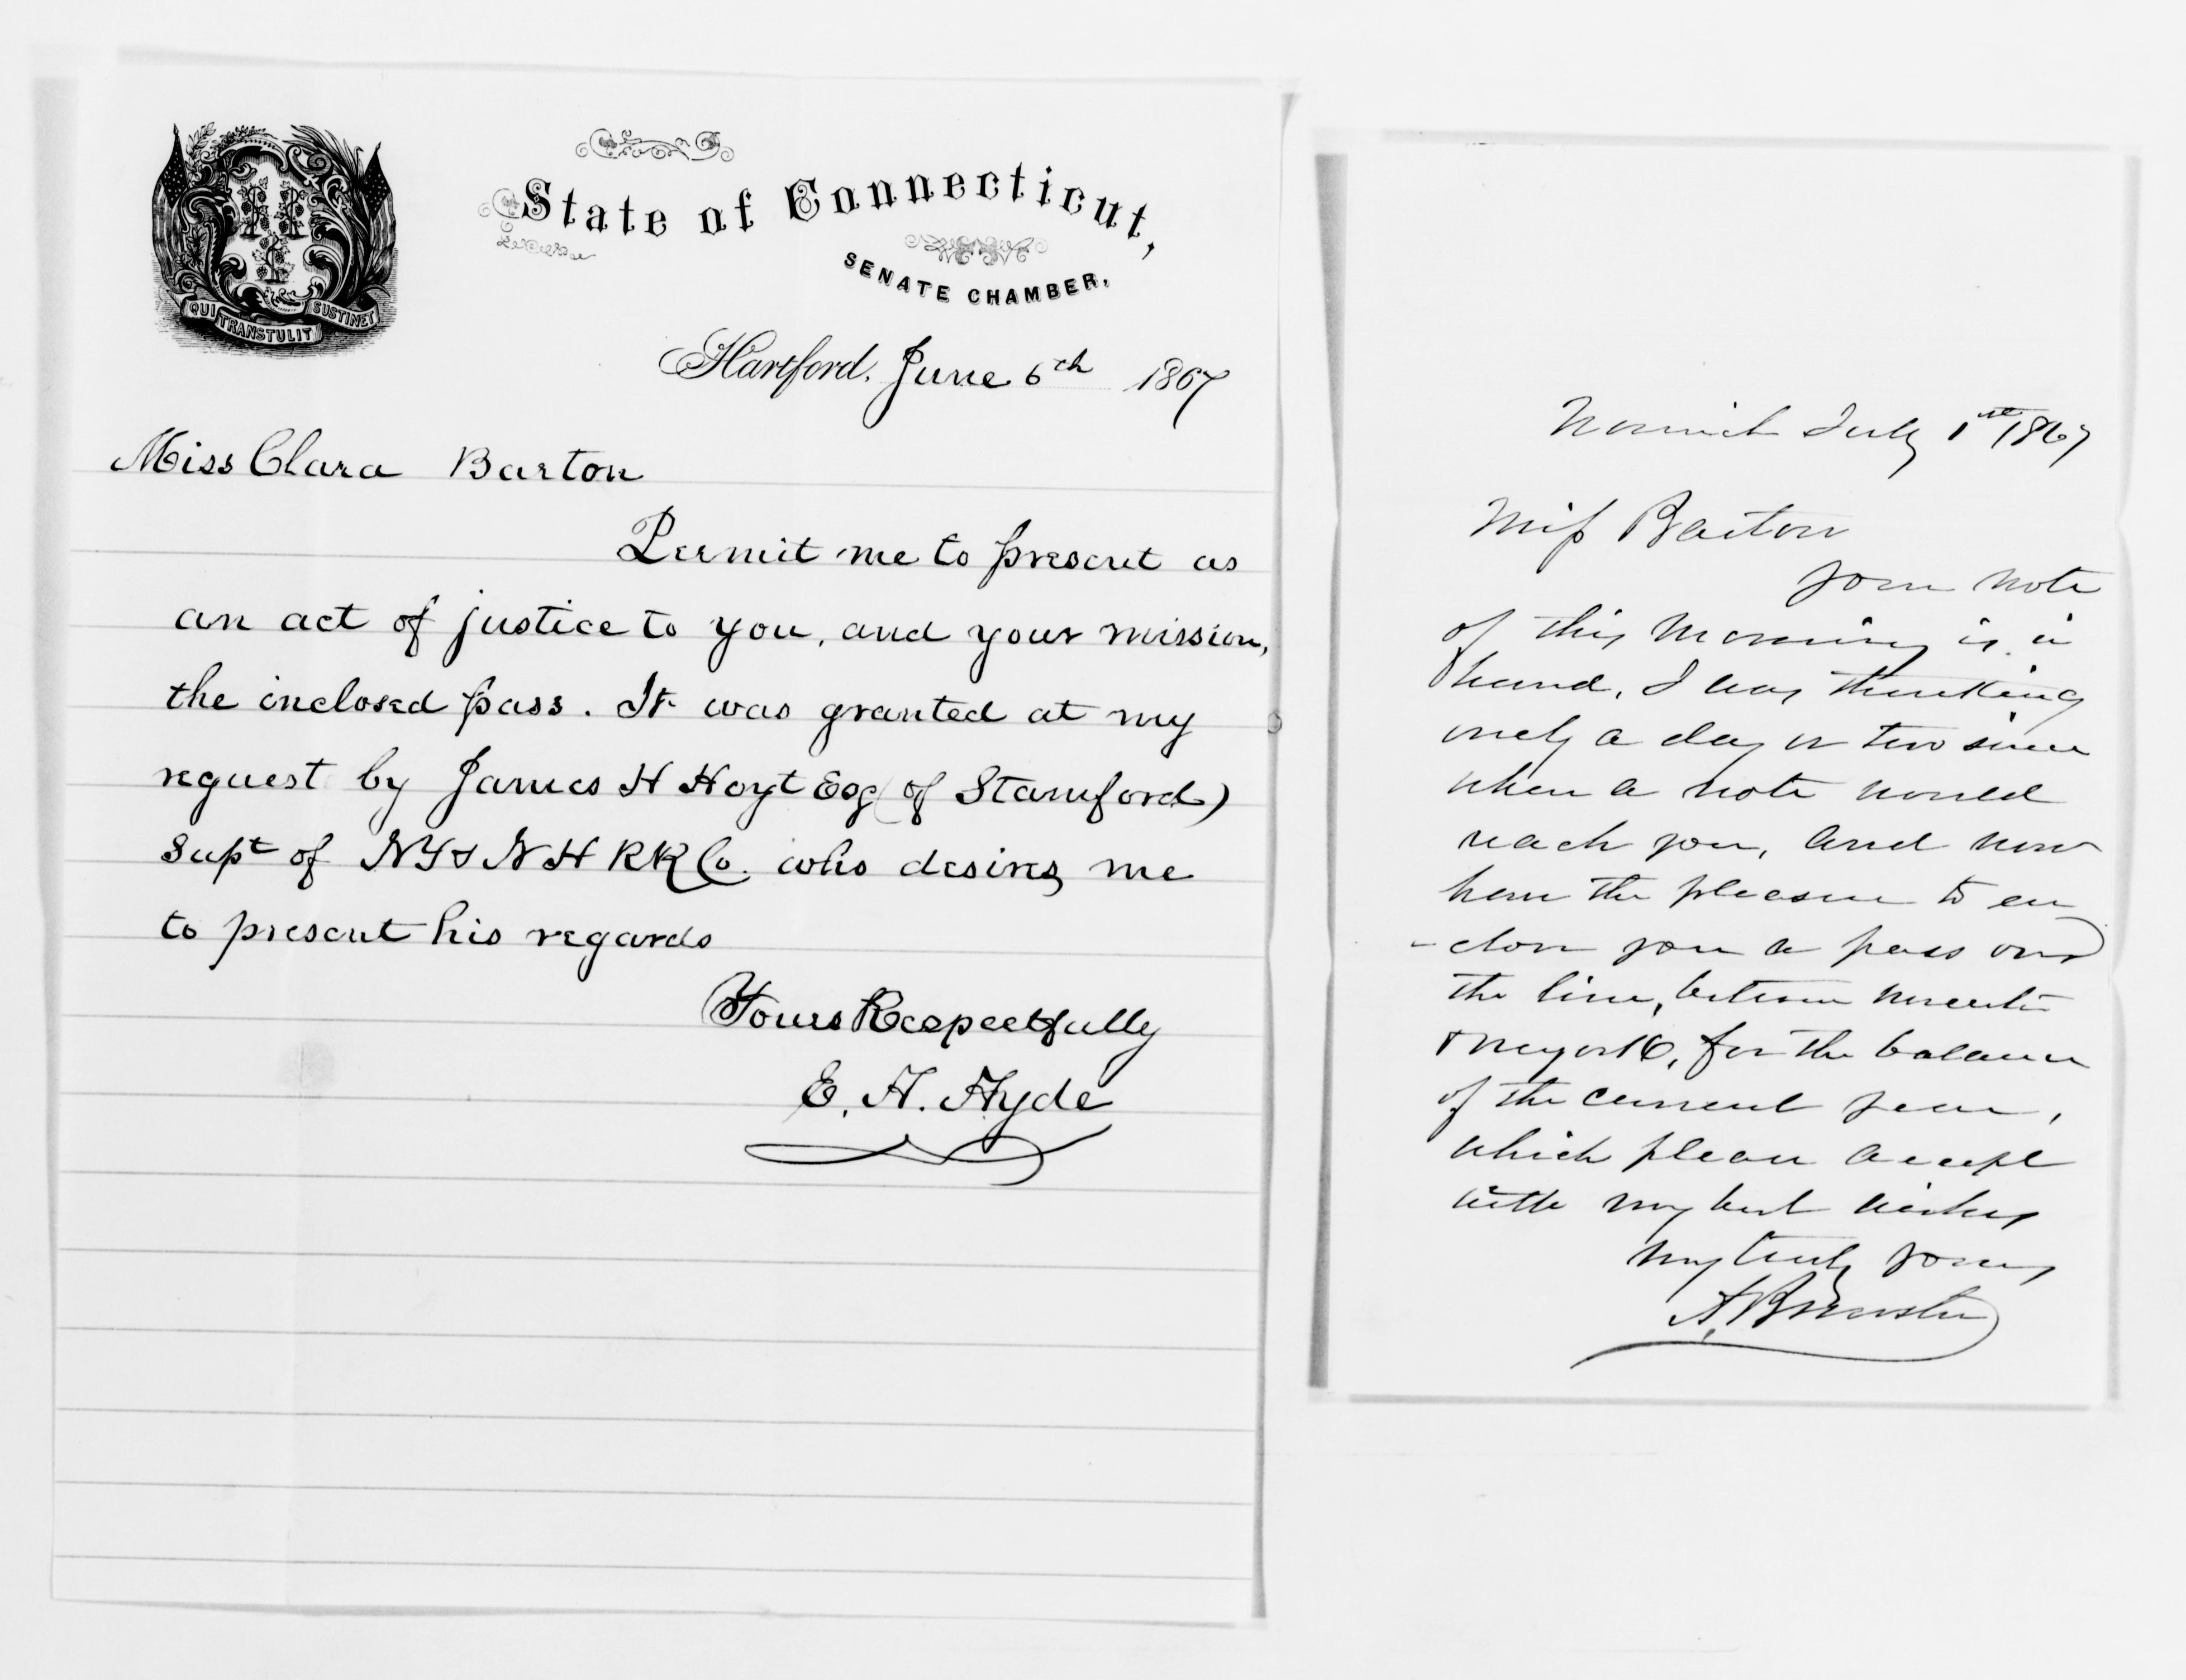 QUI TRANSTULIT SUSTINET
State of Connecticut,
SENATE CHAMBER,
Hartford, June 6th 1867
Miss Clara Barton
Permit me to present as
an act of justice to you, and your mission,
the inclosed pass. It was granted at my
request by James H Hoyt Esq (of Stamford)
Supt of NY & N H RR Co. who desires me
to present his regards
Yours Respectfully
E. H. Hyde
Norwich July 1st 1867
Miss Barton
Your note
of this morning is in
hand, I was thinking
only a day or two since
when a note would
reach you, and now
have the pleasure to en
-close you a pass over
the line, between Norwich
& New York, for the balance
of the current year,
which please accept
with my best wishes
truly yours
A. Brewster